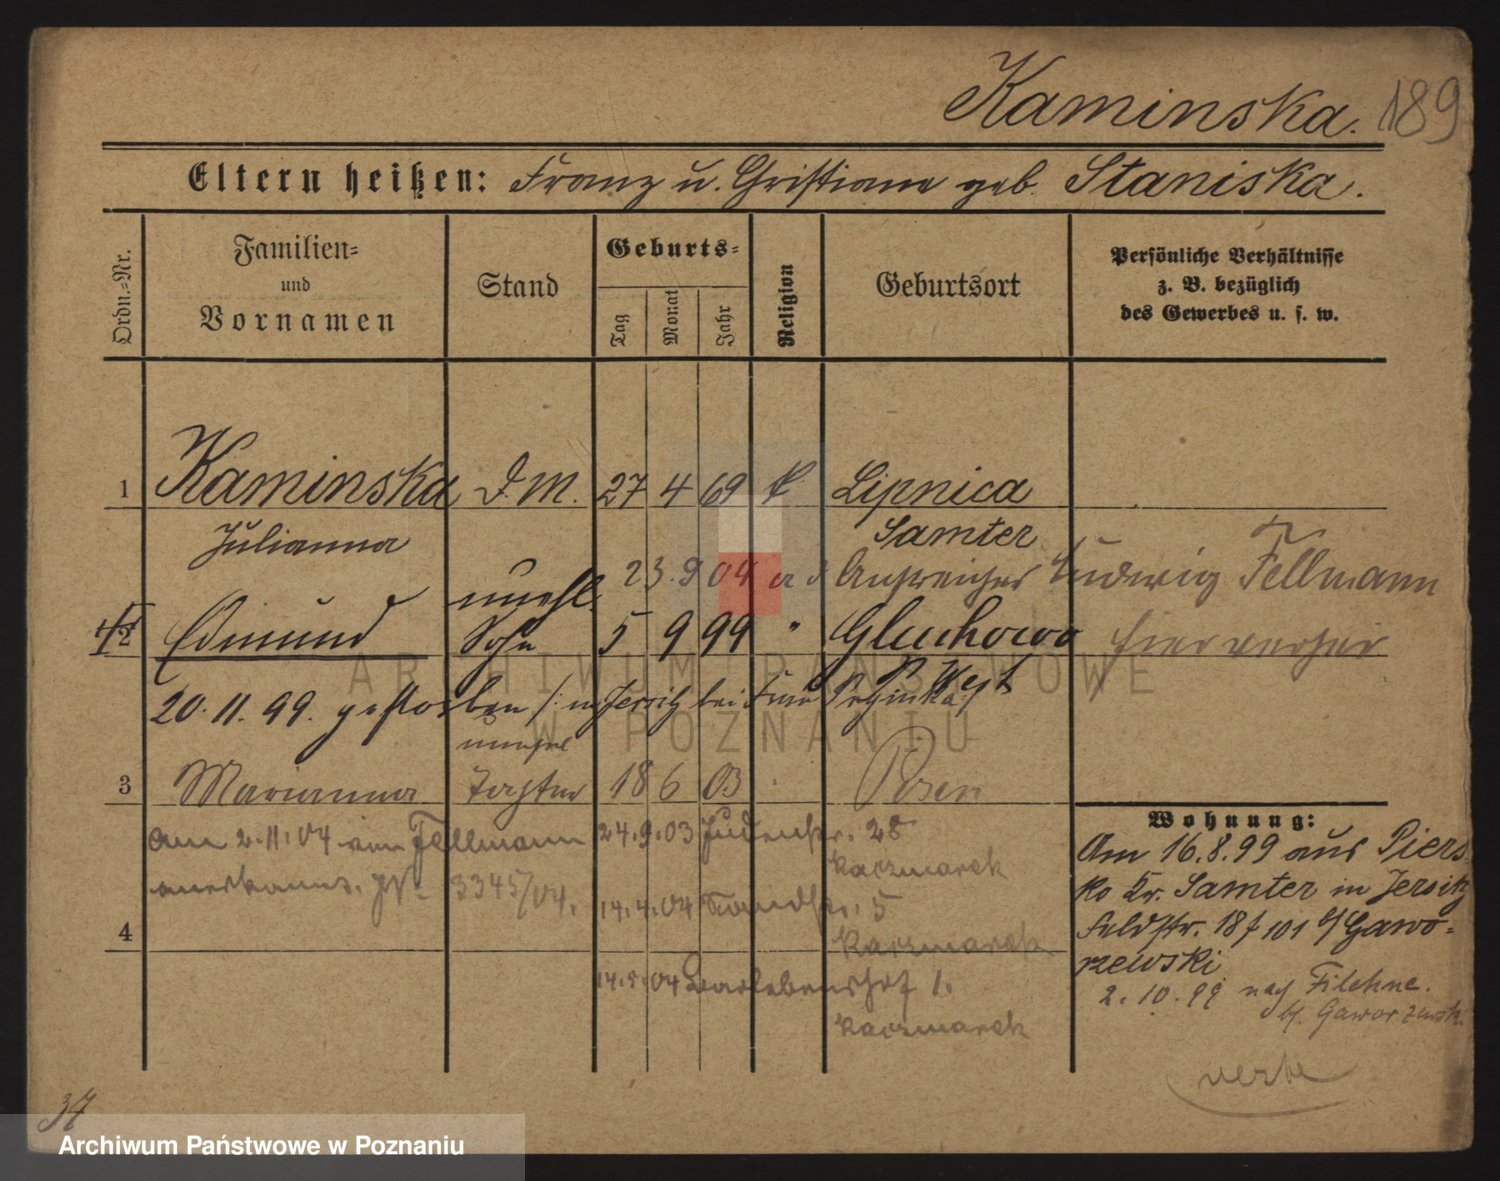 Kaminska. 189
Eltern heißen: Franz u. Christiane geb. Staniska.
Ordn.=Nr.
Familien=
und
Vornamen
Stand
Geburts=
Tag
Monat
Jahr
Religion
Geburtsort
Persönliche Verhältnisse
z. B. bezüglich
des Gewerbes u. s. w.
1 Kaminska D. M. 27 4 69 k Lipnica
Julianna Samter
23.9 04 Ludwig Fellmann
unehl.
2 Edmund Sohn 5 9 99 " Gluchowo
hier
20.11.99. gestorben /: in Jersitz bei Frau
3 Marianna Tochter 18 6 03 Posen
Wohnung:
am 2.11.04 von Fellmann
anerkannt. 3345/04.
24.9.03 Judenstr. 28
Kaczmarek
14.4.04 5
Kaczmarek
4
04 1.
Kaczmarek
Am 16.8.99 aus Piers-
ko Kr. Samter in Jersitz
Feldstr. 18 Gawo-
rzewski
2.10.99 nach Filehne.
Gaworzewski
37
ARCHIWUM PAŃSTWOWE
W POZNANIU
Archiwum Państwowe w Poznaniu